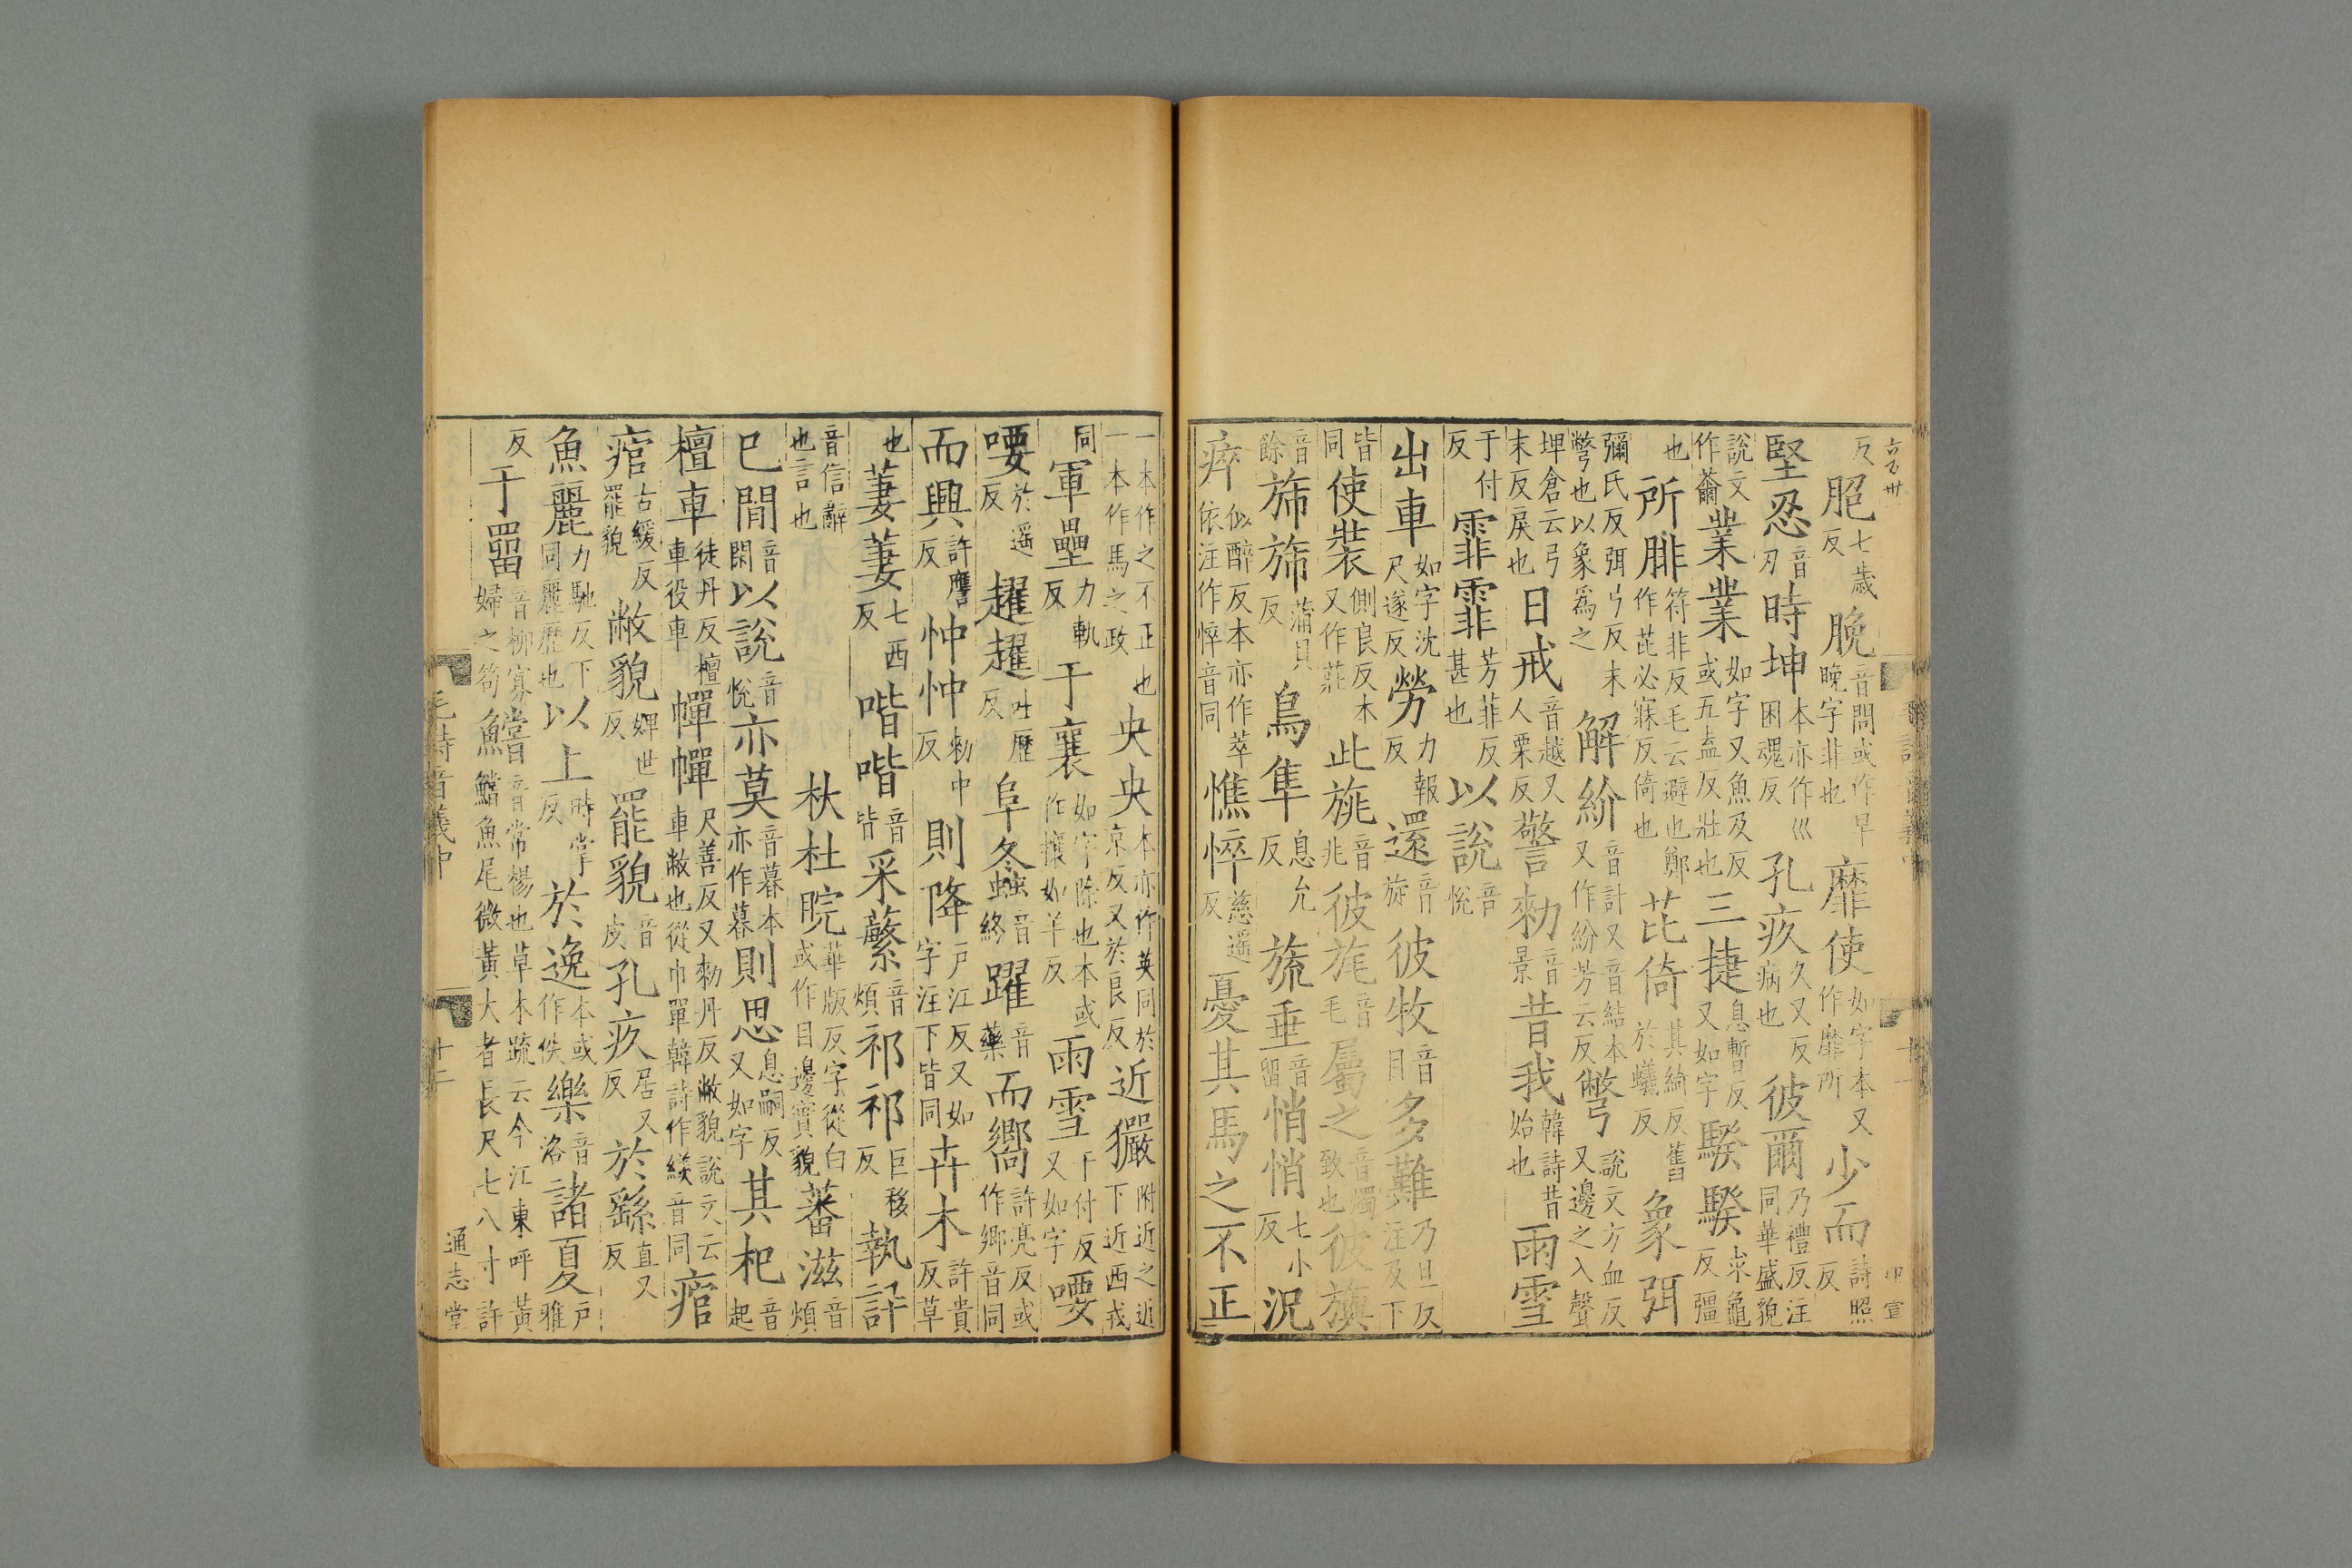 反脃七歲反脕音問或作早晚字非也靡使如字本又作靡所少而詩照反
堅忍音刃時坤本亦作巛困魂反孔疚久又反病也彼爾乃禮反注同華盛貌
說文作薾業業如字又魚及反或五盍反壯也三捷息暫反又如字騤騤求龜反彊
也所腓符非反毛云避也鄭作芘必寐反倚也芘倚其綺反舊於蟻反象弭
彌氏反弭弓反末彆也以象爲之解紒音計又音結本又作紛芳云反彆說文方血反又邊之入聲
埤倉云弓末反戾也日戒音越又人栗反警勑音景昔我韓詩昔始也雨雪
于付反霏霏芳菲反甚也以說音悅
出車如字沈尺遂反勞力報反還音旋彼牧音目多難乃旦反注及下
皆同使裝側良反本又作莊此旐音兆彼旄音毛屬之音燭致也彼旟
音餘斾斾蒲貝反鳥隼息允反旒垂音留悄悄七小反況
瘁似醉反本亦作萃依注作悴音同憔悴慈遥反憂其馬之不正
一本作之不正也一本作馬之政央央本亦作英同於京反又於良反近玁附近之近下近西戎
同軍壘力軌反于襄如字除也本或作攘如羊反雨雪于付反又如字喓
喓於遥反趯趯吐歷反阜螽音終躍音藥而嚮許亮反或作鄉音同
而興許譍反忡忡勑中反則降戸江反又如字注下皆同卉木許貴反草
也萋萋七西反喈喈音皆采蘩音煩祁祁巨移反執訊
音信辭也言也杕杜睆華版反字從白或作目邊實貌蕃滋音煩
巳閒音閑以說音悅亦莫音暮本亦作暮則思息嗣反又如字其杞音起
檀車徒丹反檀車役車幝幝尺善反又勑丹反敝貌說文云車敝也從巾單韓詩作緂音同痯
痯古緩反罷貌敝貌婢世反罷貌音皮孔疚居又反於繇直又反
魚麗力馳反下同麗歷也以上時掌反於逸本或作佚樂音洛諸夏戸雅
反于罶音柳寡婦之笱鱨音常楊也草木疏云今江東呼黃鱨魚尾微黃大者長尺七八寸許
毛詩音義中
十二
通志堂